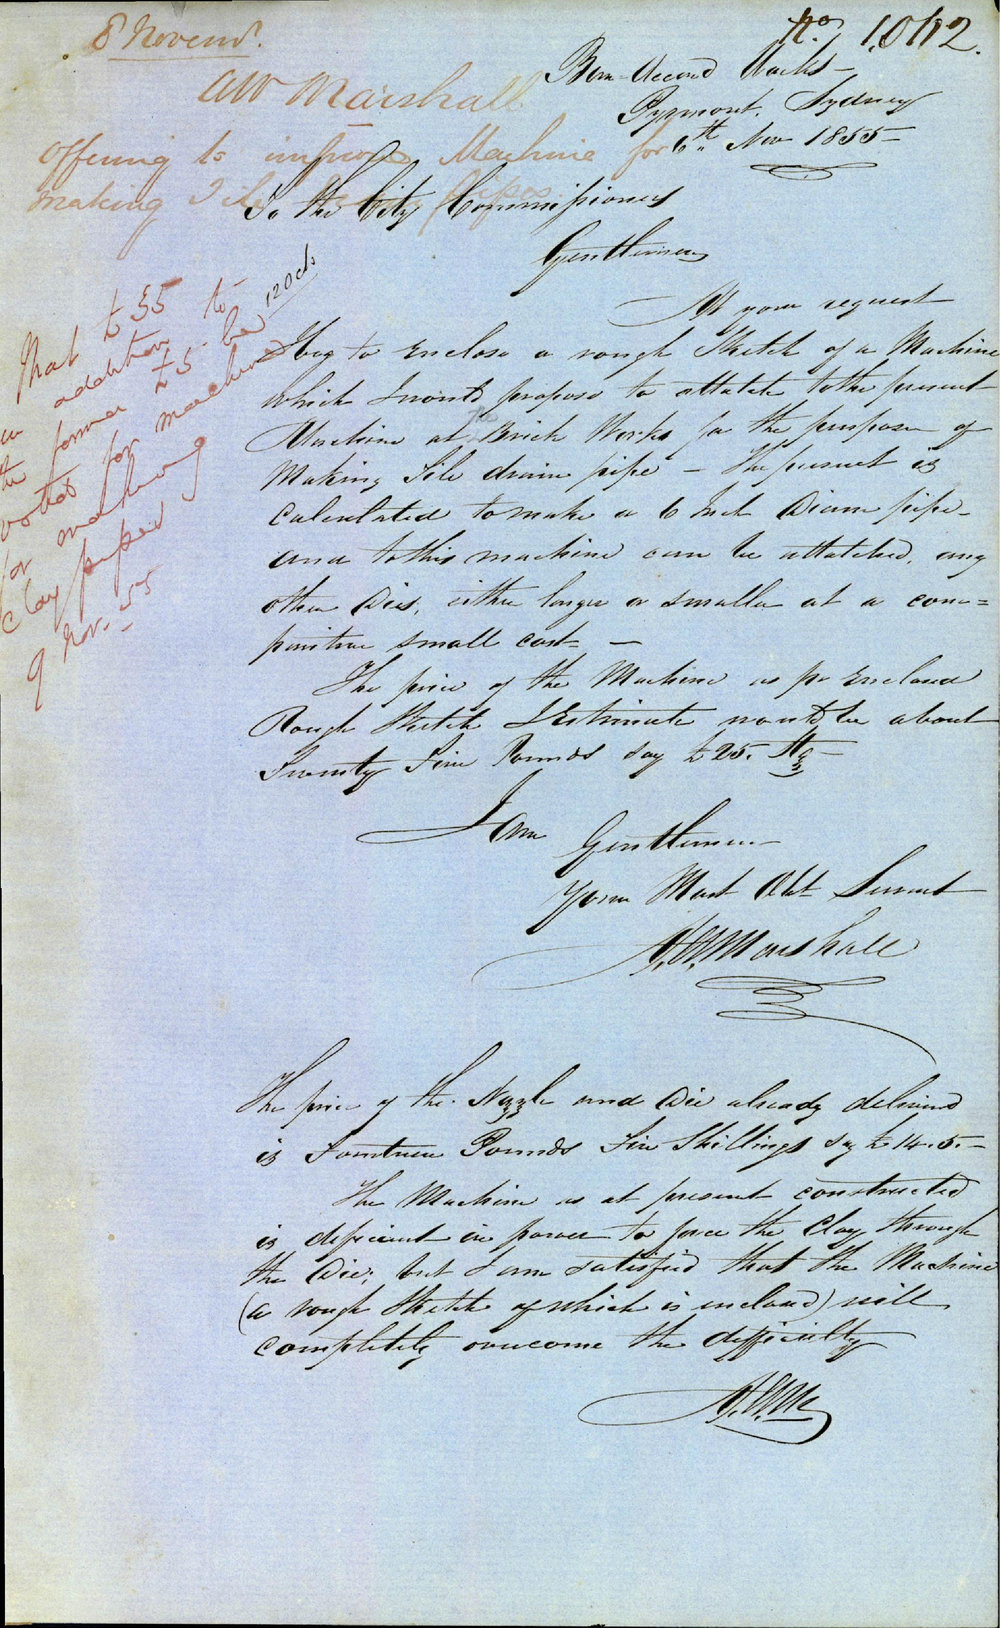 8 Novem^r.
No. 1.042.
AW Marshall
offering to improve Machine for
making Tile Drain pipes
Bon-Accord Works-
Pyrmont, Sydney
6th.. Nov 1855-
To the City Commissioners
Gentlemen
At your request
I beg to Enclose a rough Sketch of a Machine
which I would propose to attatch to the present
Machine at the Brick Works for the purpose of
Making Tile drain pipe - The present is
Calculated to make a 6 Inch Diam pipe-
and to this machine can be attatched, any
other Dies, either larger or smaller at a com=
paritive small cost -
The price of the Machine as pr Enclosed
Rough Sketch I Estimate would be about
Twenty Five Pounds say £25. Stg
I am
Gentlemen-
Your Most Obt Servant
A.W. Marshall
The price of the Nozzle and Die already delivered
is Fourteen Pounds Five Shillings say £14.5.-
The Machine as at present constructed
is deficient in power to force the Clay through
the Die; but I am satisfied that the Machine
(a rough Sketch of which is enclosed) will
completely overcome the difficulty
A.W.M
that £35
in addition to
the former £5 be
voted for machine
for making
Clay pipes
9 Nov. 55